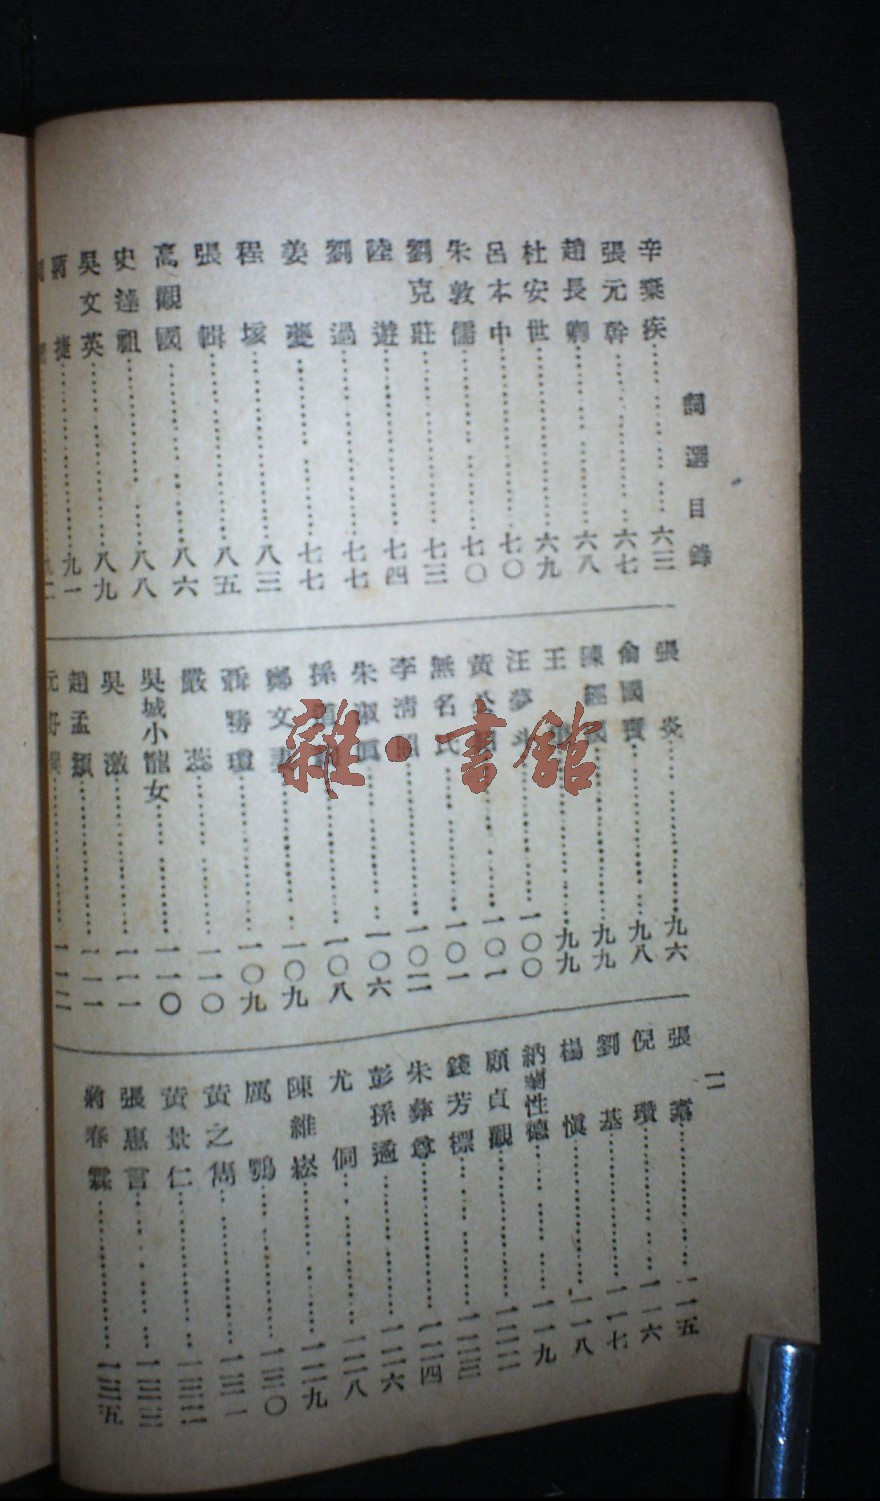 詞選目錄
二
辛棄疾……六三
張元幹……六七
趙長卿……六八
杜安世……六九
呂本中……七〇
朱敦儒……七〇
劉克莊……七三
陸遊……七四
劉過……七七
姜夔……七七
程垓……八三
張輯……八五
高觀國……八六
史達祖……八八
吳文英……八九
蔣捷……九一
張炎……九六
俞國寶……九八
陳經國……九九
王……九九
汪夢斗……一〇〇
黃公……一〇一
無名氏……一〇一
李清照……一〇二
朱淑真……一〇六
孫道絢……一〇八
鄭文妻……一〇九
聶勝瓊……一〇九
嚴蕊……一一〇
吳城小龍女……一一〇
吳激……一一一
趙孟頫……一一一
元好問……一一二
張翥……一一五
倪瓚……一一六
劉基……一一七
楊慎……一一八
納蘭性德……一一九
顧貞觀……一二二
錢芳標……一二三
朱彝尊……一二四
彭孫遹……一二六
尤侗……一二八
陳維崧……一二九
厲鶚……一三〇
黃之雋……一三一
黃景仁……一三二
張惠言……一三三
蔣春霖……一三五
雜·書館